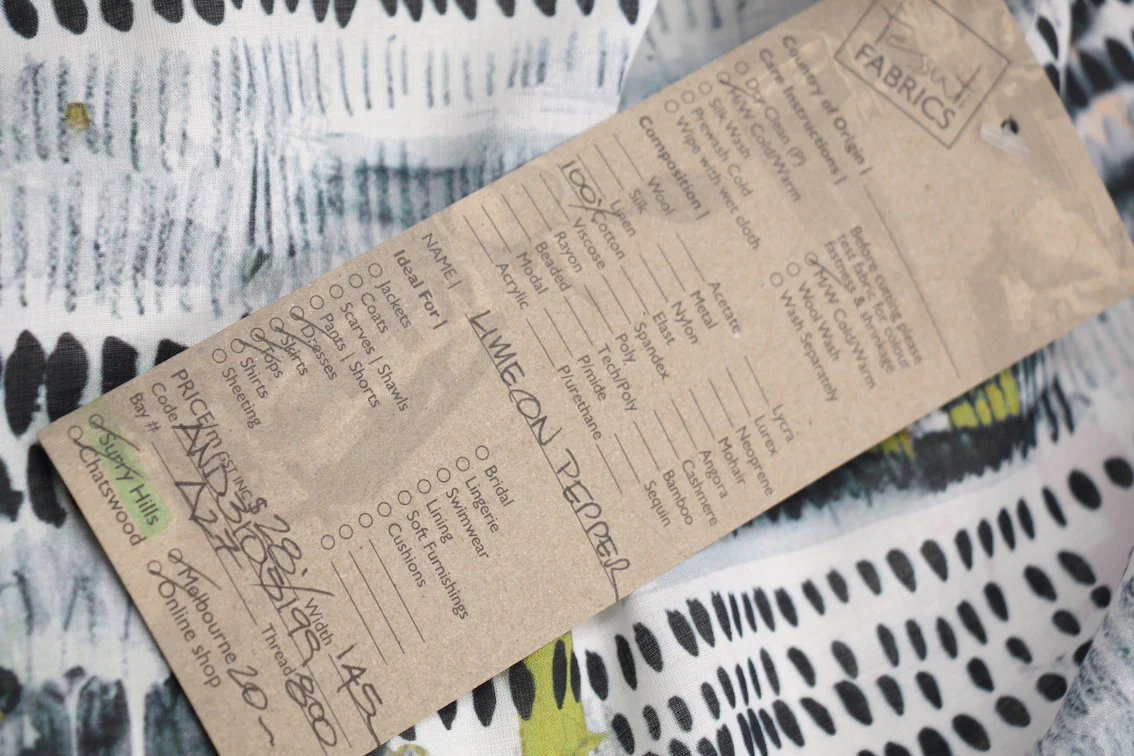 Tessuti
FABRICS
Country of Origin |
Care Instructions |
Dry Clean (P)
H/W Cold/Warm
Silk Wash
Prewash Cold
Wipe with wet cloth
Before cutting please
test fabric for colour
fastness & shrinkage
M/W Cold/Warm
Wool Wash
Wash Separately
Composition |
Wool
Silk
Linen
100% Cotton
Viscose
Rayon
Beaded
Modal
Acrylic
Acetate
Metal
Nylon
Elast
Spandex
Poly
Tech/Poly
P/mide
P/urethane
Lycra
Lurex
Neoprene
Mohair
Angora
Cashmere
Bamboo
Sequin
NAME | LIMECON PEPPER
Ideal For |
Jackets
Coats
Scarves | Shawls
Pants | Shorts
Dresses
Skirts
Tops
Shirts
Sheeting
Bridal
Lingerie
Swimwear
Lining
Soft Furnishings
Cushions
PRICE/m GST INC $ 28.- Width 145
Code Thread 800
Bay # A27
Surry Hills
Chatswood
Melbourne 20
Online shop